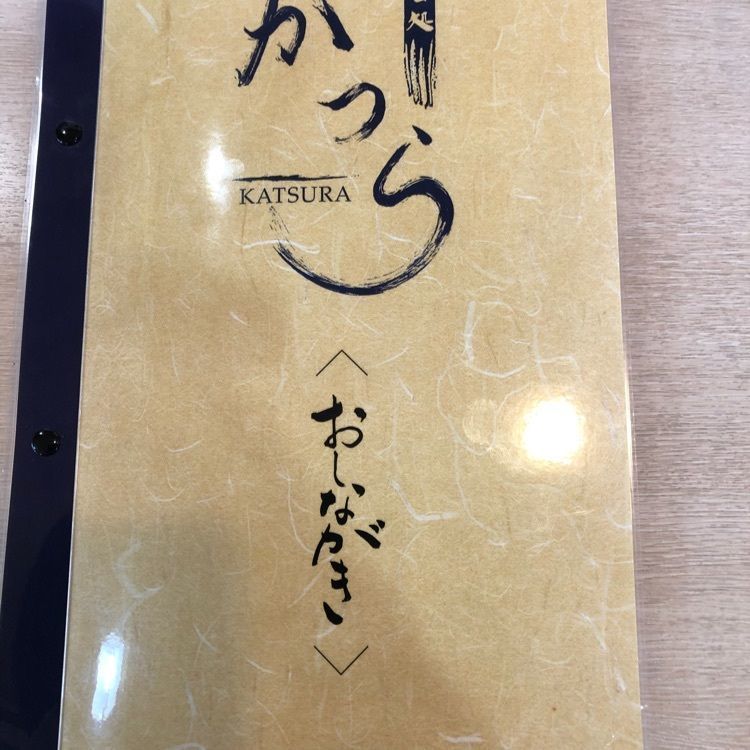 処
かつら
KATSURA
〈おしながき〉